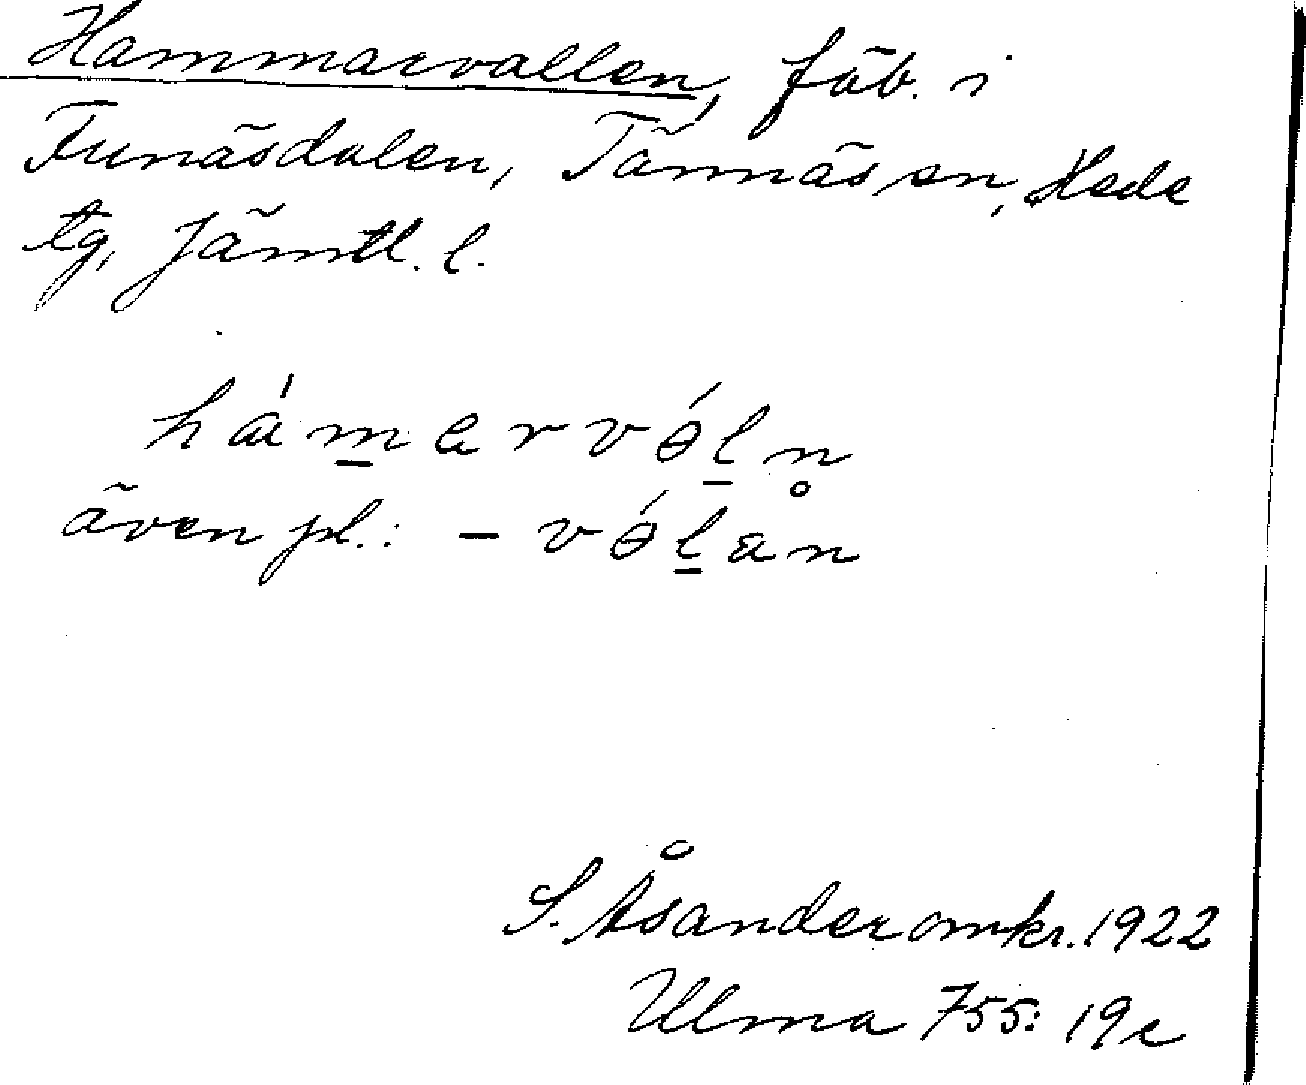 Hammarvallen, fäb. i
Funäsdalen, Tännäs sn, Hede
tg, Jämtl. l.
hám̲ervə́l̲n̥
även pl.: -və́l̲an
S. Åsander omkr. 1922
Ulma 755: 19c